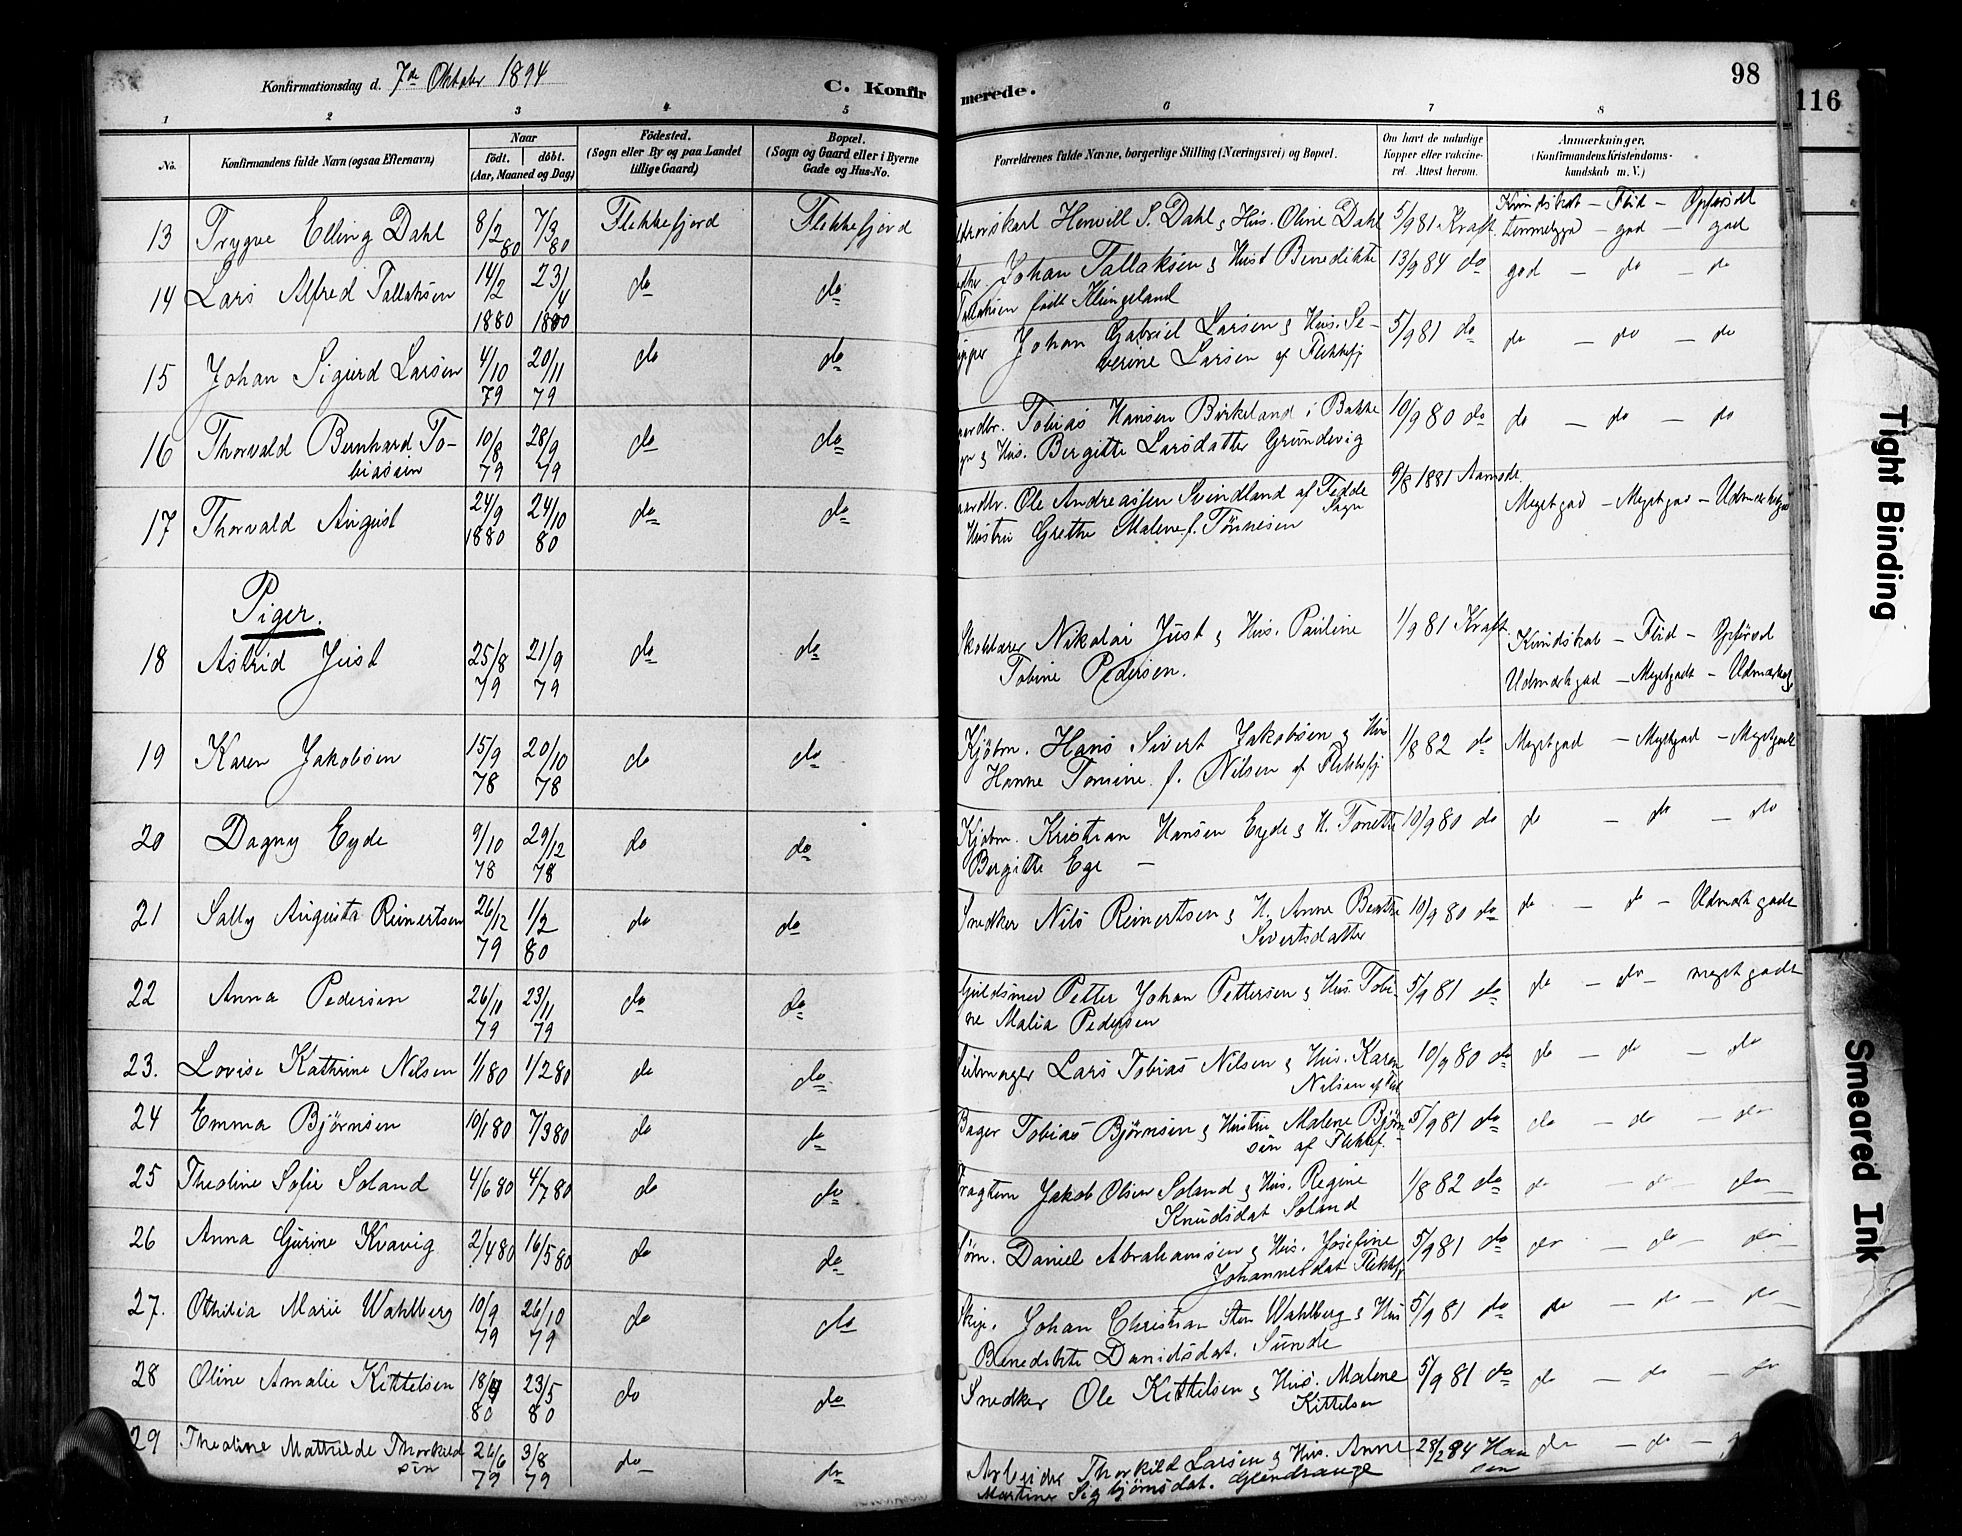 Konfirmationsdag d. 7de Oktober 1894
C. Konfir
merede.
98
116
1 2 3 4 5 6 7 8
No.
Konfirmandens fulde Navn (ogsaa Efternavn)
Naar
født. døbt.
(Aar, Maaned og Dag)
Fødested.
(Sogn eller By og paa Landet
tillige Gaard)
Bopæl.
(Sogn og Gaard eller i Byerne
Gade og Hus-No.
Forældrenes fulde Navne, borgerlige Stilling (Næringsvei) og Bopæl.
Om havt de naturlige
Kopper eller vakcine-
ret Attest herom.
Anmærkninger.
(Konfirmandens Kristendoms-
kundskab m. V.)
13 Trygve Elling Dahl 8/2 80 7/3 80 Flekkefjord Flekkefjord Henvill S. Dahl & Hus. Oline Dahl 5/9 81 Kraft Kundskab – Flid – Opførsel
god – god
14 Lars Alfred Tallaksen 14/2 1880 23/4 1880 do do Johan Tallaksen & Hust Benedikte 13/9 84 do god – do – do
Tallaksen født Klungeland
15 Johan Sigurd Larsen 4/10 79 20/11 79 do do Johan Gabriel Larsen & Hus. Se- 5/9 81 do do – do – do
verine Larsen af Flekkefj
16 Thorvald Bernhard To- 10/8 79 28/9 79 do do Tobias Hansen Birkeland i Bakke 10/9 80 do do – do – do
biassen & Hus. Bergitte Larsdatter Grundevig
17 Thorvald August 24/9 1880 24/10 80 do do Ole Andreassen Svindland af Fedde 9/8 1881 Megetgod – Megetgod – Udmærketgod
Sogn
Hustru Grethe Malene f. Tønnesen
Piger.
18 Astrid Just 25/8 79 21/9 79 do do Nikolai Just & Hus. Pauline 1/9 81 Kraft Kundskab – Flid – Opførsel
Tobine Pedersen. Udmærkgod – Megetgodt – Udmærket
19 Karen Jakobsen 15/9 78 20/10 78 do do Kjöbm. Hans Sivert Jakobsen & Hus 1/8 82 do Megetgod – Megtgod – Megetgodt
Hanne Tomine f. Nilsen af Flekkefj
20 Dagny Eyde 9/10 78 29/12 78 do do Kjöbm. Kristian Hansen Eyde & H. Tonette 10/9 80 do do – do – do
Bergitte Ege –
21 Sally Augusta Reinertsen 26/12 79 1/2 80 do do Snedker Nils Reinertsen & H. Anne Beathe 10/9 80 do do – do – Udmærk godt
Sivertsdatter
22 Anna Pedersen 26/10 79 23/11 79 do do Guldsmed Petter Johan Pettersen & Hus. Tobi- 5/9 81 do do – do – meget godt
ne Malia Pedersen
23. Lovise Kathrine Nilsen 1/1 80 1/2 80 do do Lars Tobias Nilsen & Hus. Karen 10/9 80 do do – do – do
Nilsen af Flek
24 Emma Bjørnsen 10/1 80 7/3 80 do do Bager Tobias Bjørnsen & Hustru Malene Bjørn- 5/9 81 do do – do – do
sen af Flekkef.
25 Theoline Sofie Soland 4/6 80 4/7 80 do do Jakob Olsen Soland & Hus. Regine 1/8 82 do do – do – do
Knudsdat Soland
26 Anna Gurine Kvavig 2/4 80 16/5 80 do do Daniel Abrahamsen & Hus. Josefine 5/9 81 do do – do – do
Johannesdat Flekkefj
27. Othilia Marie Wahlberg 10/9 79 26/10 79 do do Skip. Johan Christian Sten Wahlberg & Hus 5/9 81 do do – do – do
Benedikte Danielsdat. Sunde
28 Oline Amalie Kittelsen 18/4 80 23/5 80 do do Snedker Ole Kittelsen & Hus. Malene 5/9 81 do do – do – do
Kittelsen
29 Theoline Mathilde Thorkild 26/6 79 3/8 79 do do Arbeider Thorkild Larsen & Hus. Anne 28/2 84 Han do – do
sen Martine Sigbjørnsdat. Glendrange sen
Tight Binding
Smeared Ink